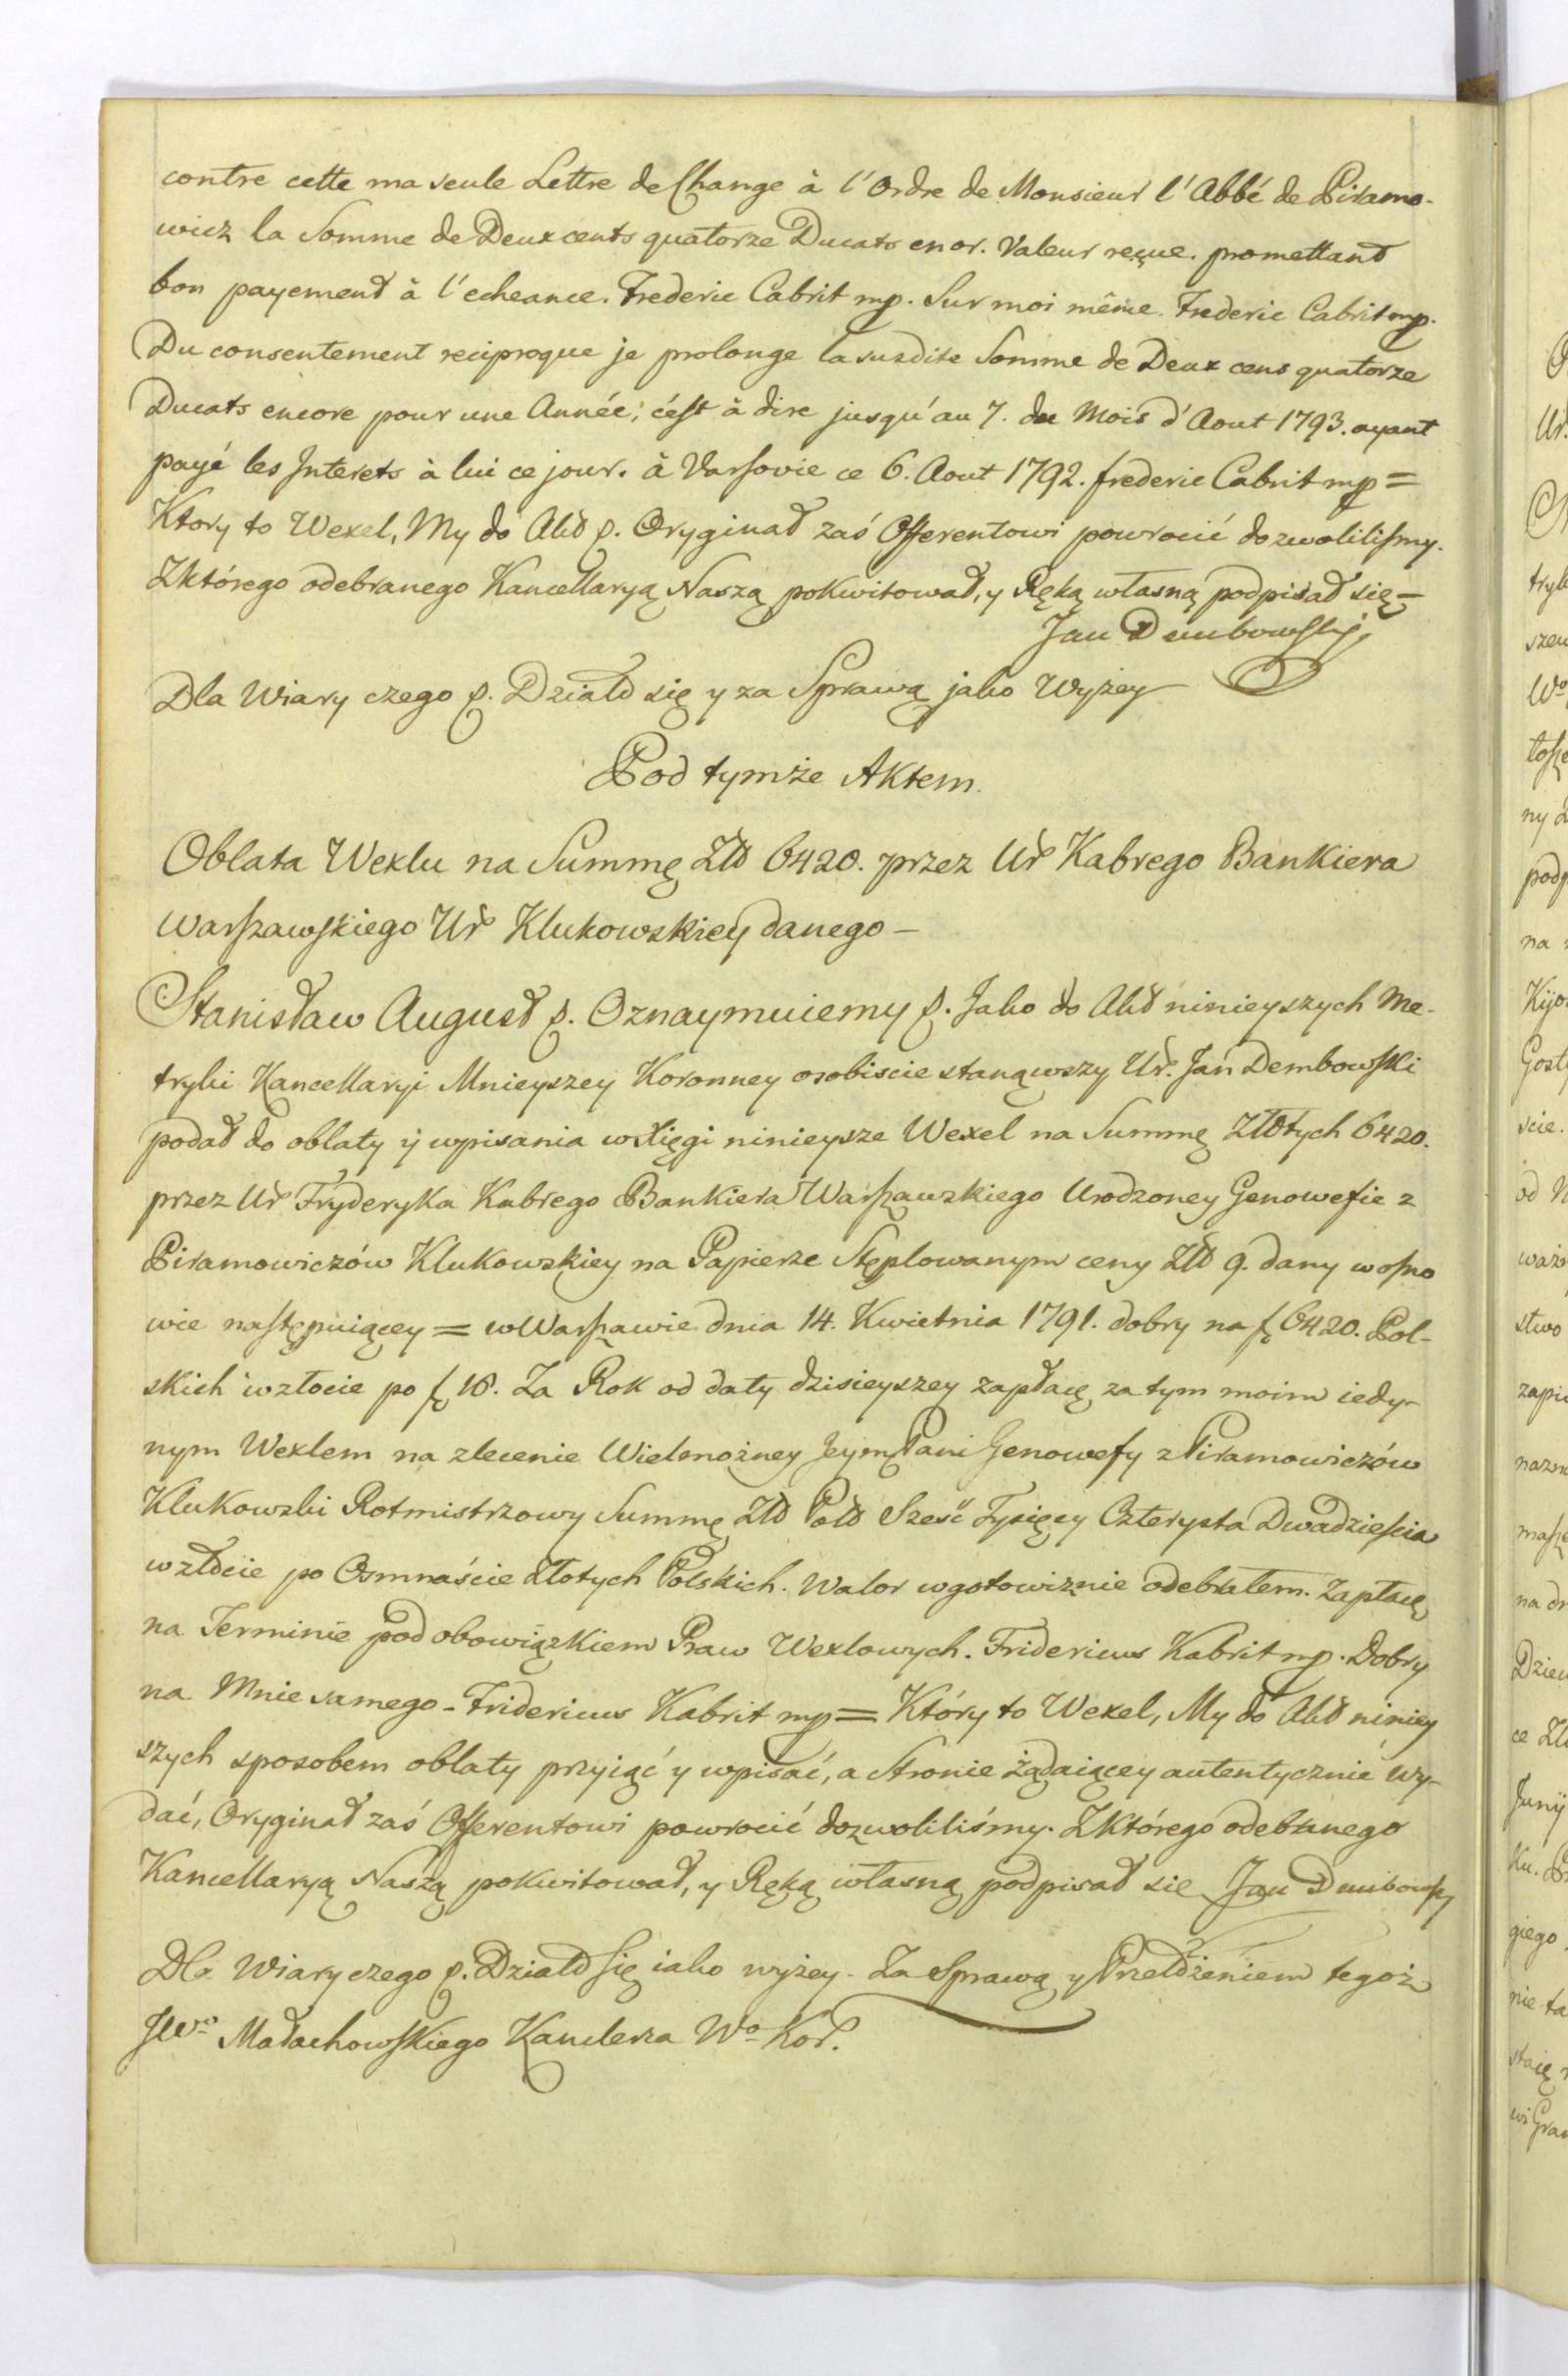 contre cette ma seule Lettre de Change à l'Ordre de Monsieur l'Abbé de Piramo-
wicz la Somme de Deux cents quatorze Ducats en or. Valeur reçue. promettant
bon payement à l'echeance. Frederic Cabrit mp. Sur moi même. Frederic Cabrit mp.
Du consentement reciproque je prolonge la susdite Somme de Deux cens quatorze
Ducats encore pour une Année; c'est à dire jusqu'au 7. du Mois d'Aout 1793. ayant
payé les Interets à lui ce jour. à Varsovie ce 6. Aout 1792. frederic Cabrit mp =
Ktory to Wexel, My do Akt p. Oryginał zaś Offerentowi powrocić dozwolilismy.
Zktórego odebranego Kancellaryą Naszą pokwitował, y Ręką własną podpisał się –
Jan Dembowski
Dla Wiary czego p. Działo się y za Sprawą jako Wyżey
Pod tymże Aktem.
Oblata Wexlu na Summę Złł 6420. przez Ur Kabrego Bankiera
Warszawskiego Ur Klukowskiey danego –
Stanisław August p. Oznaymuiemy p. Jako do Akt ninieyszych Me-
tryki Kancellaryi Mnieyszey Koronney osobiscie stanąwszy Ur. Jan Dembowski
podał do oblaty y wpisania w Xięgi ninieysze Wexel na Summę Złłtych 6420.
przez Ur Fryderyka Kabrego Bankiera Warszawskiego Urodzoney Genowefie z
Piramowiczów Klukowskiey na Papierze Stęplowanym ceny Złł 9. dany w osno
wie następuiącey = w Warszawie dnia 14. Kwietnia 1791. dobry na f 6420. Pol-
skich w złocie po f 18. Za Rok od daty dzisieyszey zapłacę za tym moim iedy-
nym Wexlem na zlecenie Wielmożney Jeym Pani Genowefy z Piramowiczów
Klukowski Rotmistrzowy Summę Złł Poll Sześć Tysięcy Czterysta Dwadzieścia
w złocie po Osmnaście złotych Polskich. Walor w gotowiznie odebrałem. Zapłacę
na Terminie pod obowiązkiem Praw Wexlowych. Fridericus Kabrit mp. Dobry
na Mnie samego – Fridericus Kabrit mp = Który to Wexel, My do Akt niniey
szych sposobem oblaty przyiąć y wpisać, a Stronie żądaiącey autentycznie wy-
dać, Oryginał zaś Offerentowi powrocić dozwoliliśmy. Zktórego odebranego
Kancellaryą Naszą pokwitował, y Ręką własną podpisał sie Jan Dembowski
Dla Wiary czego p. Działo się iako wyżey. Za Sprawą y Przełożeniem tegoż
JWo Małachowskiego Kanclerza Wo Kor.